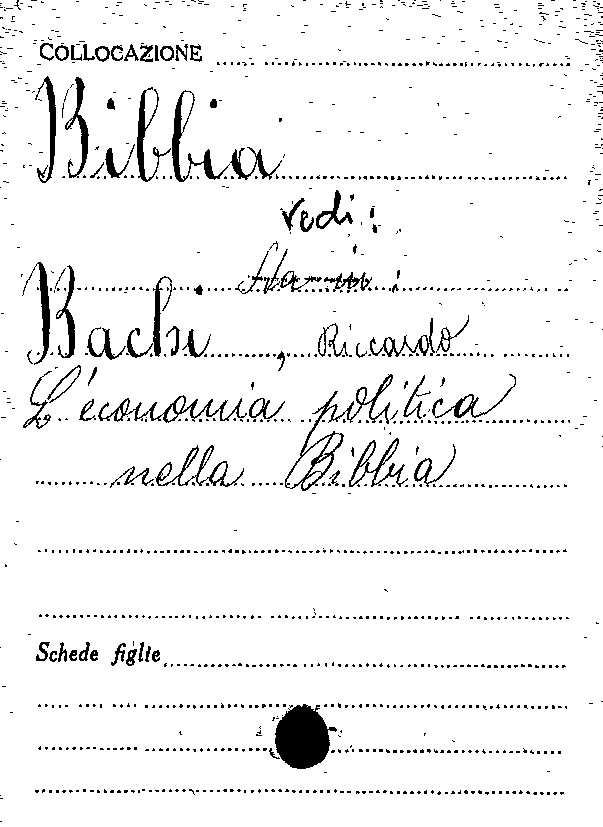 COLLOCAZIONE
Bibbia
vedi:
Bachi, Riccardo
L'economia politica
nella Bibbia
Schede figlie